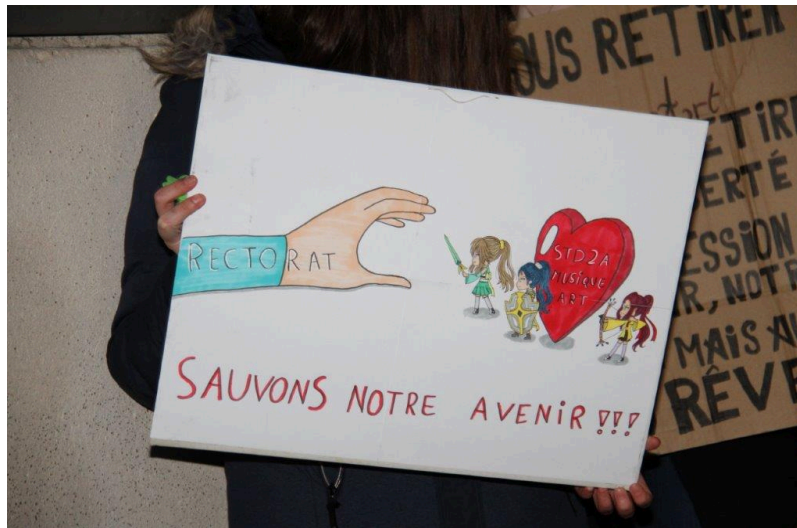 RECTORAT
STD2A
MUSIQUE
ART
SAUVONS NOTRE AVENIR !!!
OUS RETIRER
art
ETIR
ERTÉ
ESSION
R, NOT
MAIS AU
RÊVE